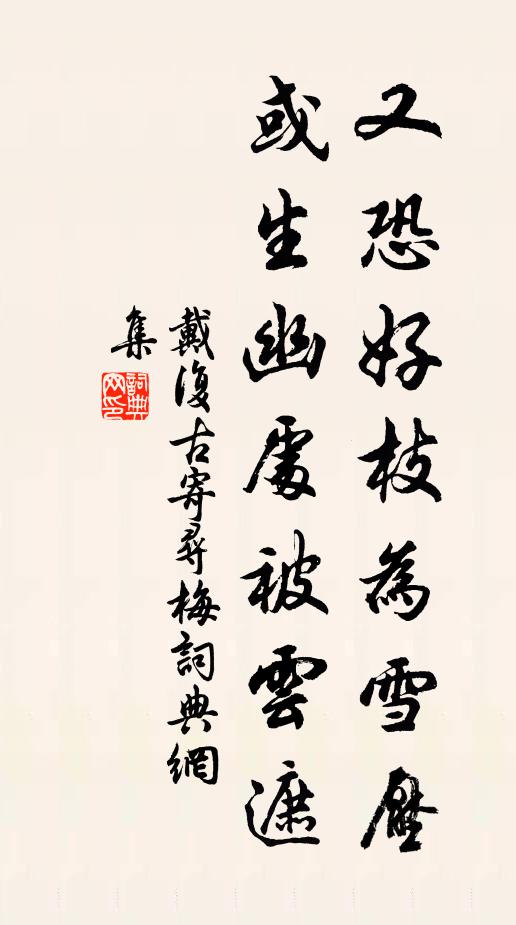 又恐好枝為雪壓
或生幽處被雲遮
戴復古寄尋梅詞典網
集
詞典
网印